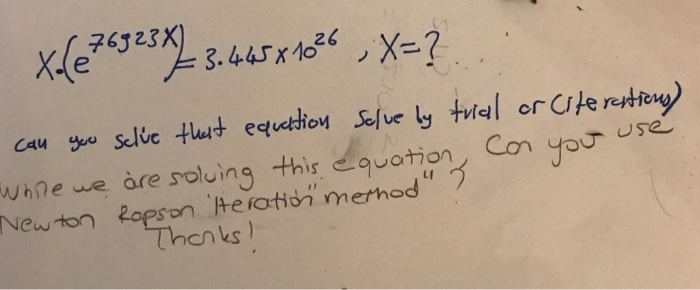 X.(e^76923X) = 3.445x10^26 , X=?
can you solve that equation solve by trial or (iterations)
While we are solving this equation, Can you use
Newton Rapson "Iteration" method" ?
Thanks!